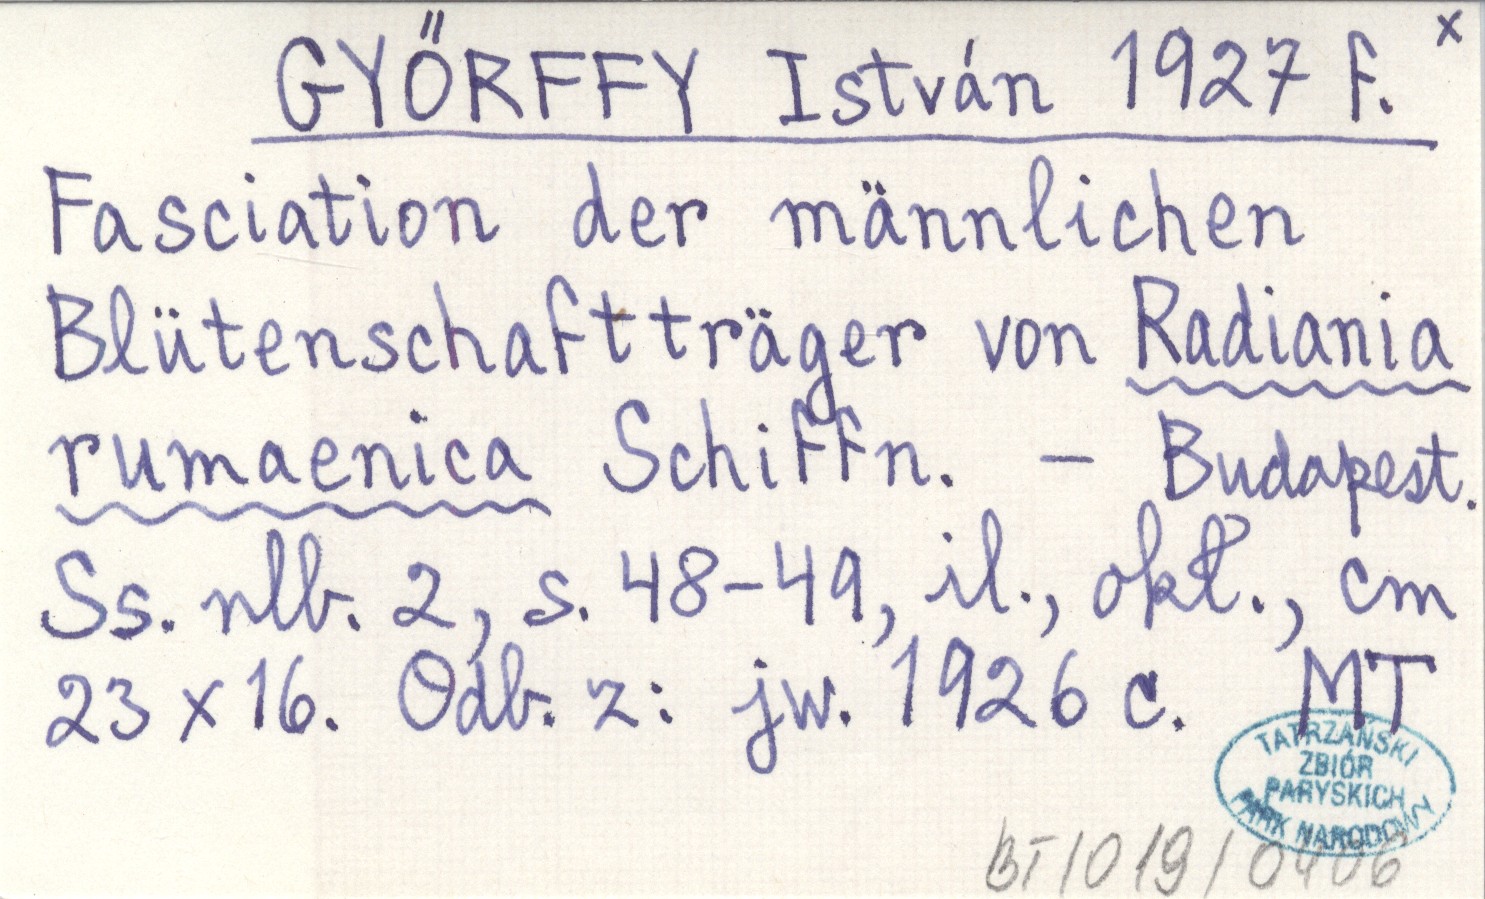 GYŐRFFY István 1927 f. x
Fasciation der männlichen
Blütenschaftträger von Radiania
rumaenica Schiffn. – Budapest.
Ss. nlb. 2, s. 48–49, il., okł., cm
23 x 16. Odb. z: jw. 1926 c. MT
TATRZAŃSKI
ZBIÓR
PARYSKICH
PARK NARODOWY
BT/019/0406